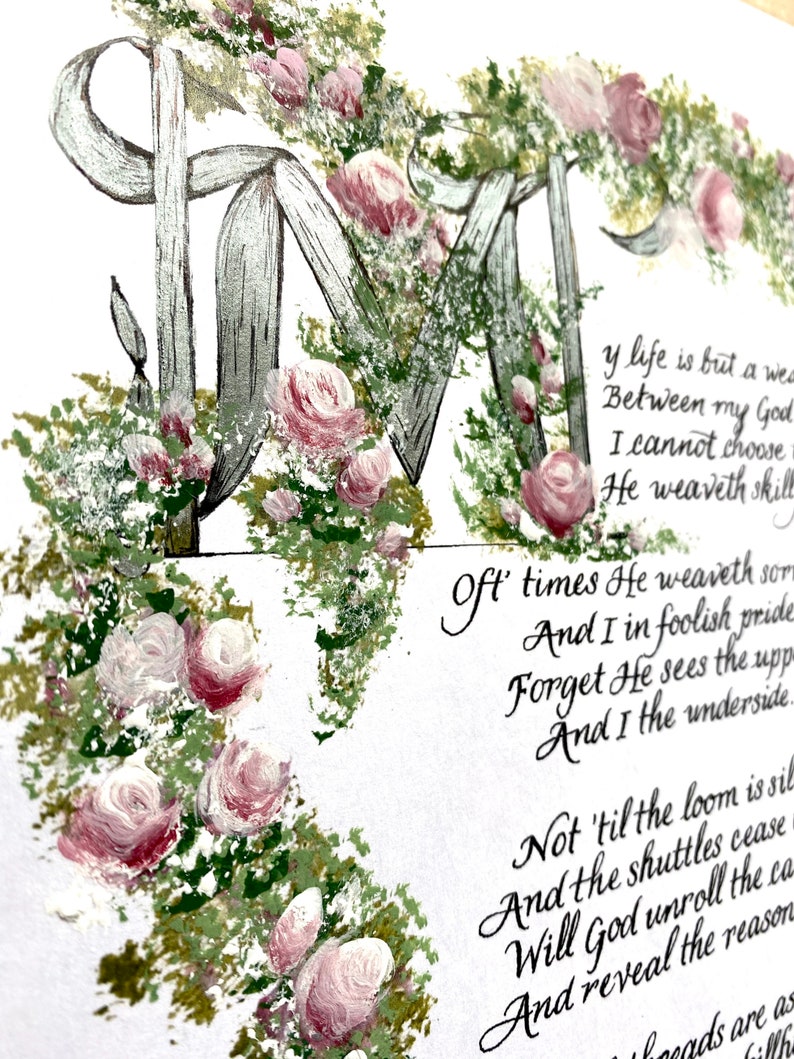 My life is but a
Between my God
I cannot choose
He weaveth
Oft' times He weaveth
And I in foolish pride
Forget He sees the
And I the underside.
Not 'til the loom is
And the shuttles cease
Will God unroll the
And reveal the reason
are as